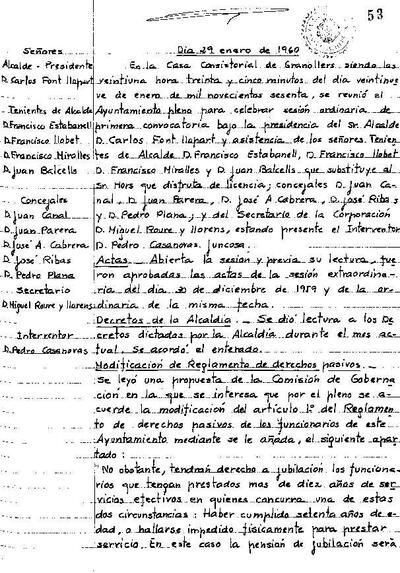 53
Señores
Alcalde - Presidente
D. Carlos Font Llapart
Tenientes de Alcalde
D. Francisco Estabanell
D. Francisco Llobet
D. Francisco Miralles
D. Juan Balcells
Concejales
D. Juan Canal
D. Juan Parera
D. José A. Cabrera
D. José Ribas
D. Pedro Plana
Secretario
D. Miguel Roure y Llorens
Interventor
D. Pedro Casanovas
Dia 29 enero de 1960
En la Casa Consistorial de Granollers siendo las
veintiuna hora treinta y cinco minutos del dia veintinue
ve de enero de mil novecientos sesenta, se reunió el
Ayuntamiento pleno para celebrar sesión ordinaria de
primera convocatoria bajo la presidencia del Sr. Alcalde
D. Carlos Font Llapart y asistencia de los señores Tenien
tes de Alcalde D. Francisco Estabanell, D. Francisco Llobet
D. Francisco Miralles y D. Juan Balcells que substituye al
Sr. Mors que disfruta de licencia; concejales D. Juan Ca-
nal, D. Juan Parera, D. José A. Cabrera, D. José Ribas
y D. Pedro Plana; y del Secretario de la Corporación
D. Miguel Roure y Llorens, estando presente el Interventor
D. Pedro Casanovas Juncosa.
Actas. Abierta la sesión y previa su lectura, fue
ron aprobadas las actas de la sesión extraordina-
ria del dia 30 de diciembre de 1959 y de la or-
dinaria de la misma fecha.
Decretos de la Alcaldía. Se dió lectura a los De
cretos dictados por la Alcaldía durante el mes ac-
tual. Se acordó el enterado.
Modificación de Reglamento de derechos pasivos.
Se leyó una propuesta de la Comisión de Goberna
ción en la que se interesa que por el pleno se a-
cuerde la modificación del artículo 1º del Reglamen
to de derechos pasivos de los funcionarios de este
Ayuntamiento mediante se le añada, el siguiente apar
tado:
"No obstante, tendrán derecho a jubilación los funciona-
rios que tengan prestados mas de diez años de ser
vicios efectivos en quienes concurra una de estas
dos circunstancias: Haber cumplido setenta años de e-
dad, o hallarse impedido fisicamente para prestar
servicio. En este caso la pensión de jubilación será